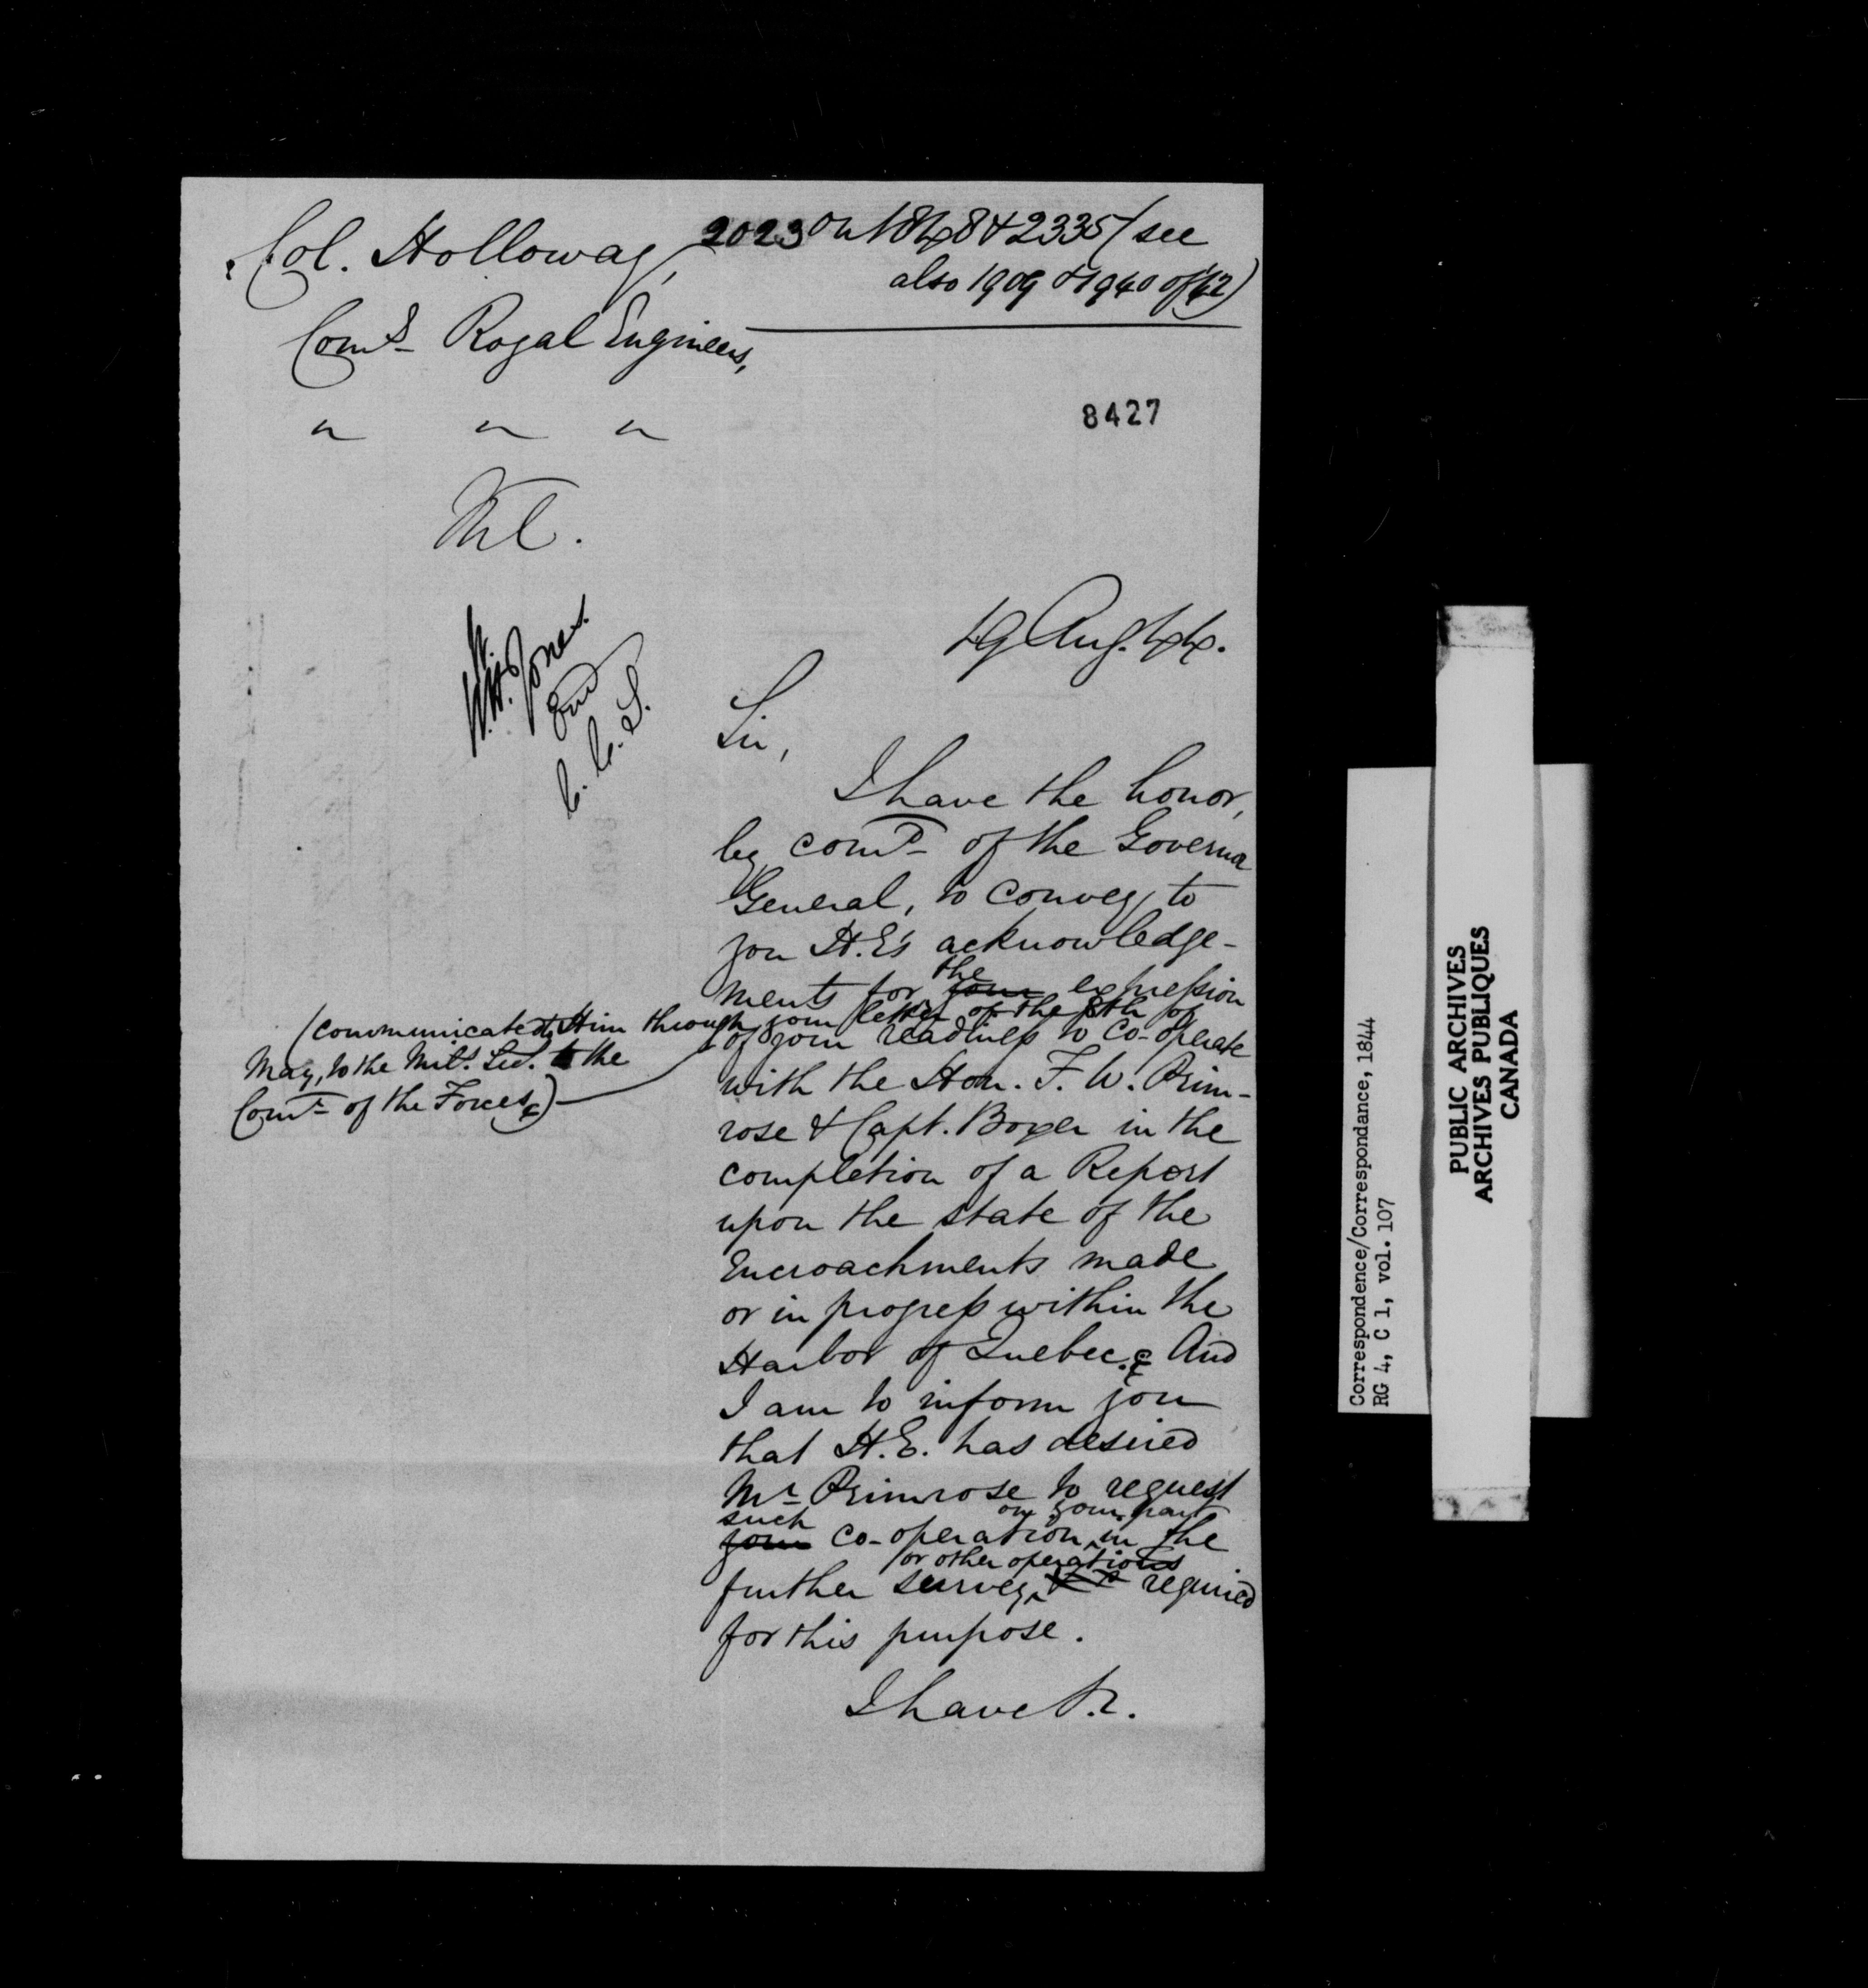 Col. Holloway,
2023 on 1848 & 2335 (see
also 1909 & 1940 of 42)
Comd. Royal Engineers,
" " "
8427
Ml.
19 Aug. 44.
W. H. Jones.
C. C. S.
Sir,
I have the honor,
by comd. of the Governor
General, to convey to
you H.E's acknowledge-
ments for your the expression
of your readiness to co-operate
(communicated to Him through your letter of the 8th of
May, to the Mily. Sec. to the
Comr. of the Forces,)
with the Hon. F. W. Prim-
rose & Capt. Boxer in the
completion of a Report
upon the state of the
Encroachments made
or in progress within the
Harbor of Quebec. And
I am to inform you
that H.E. has desired
Mr. Primrose to request
such on your part
your co-operation in the
or other operations
further survey required
for this purpose.
I have &c.
Correspondence/Correspondance, 1844
RG 4, C 1, vol. 107
PUBLIC ARCHIVES
ARCHIVES PUBLIQUES
CANADA